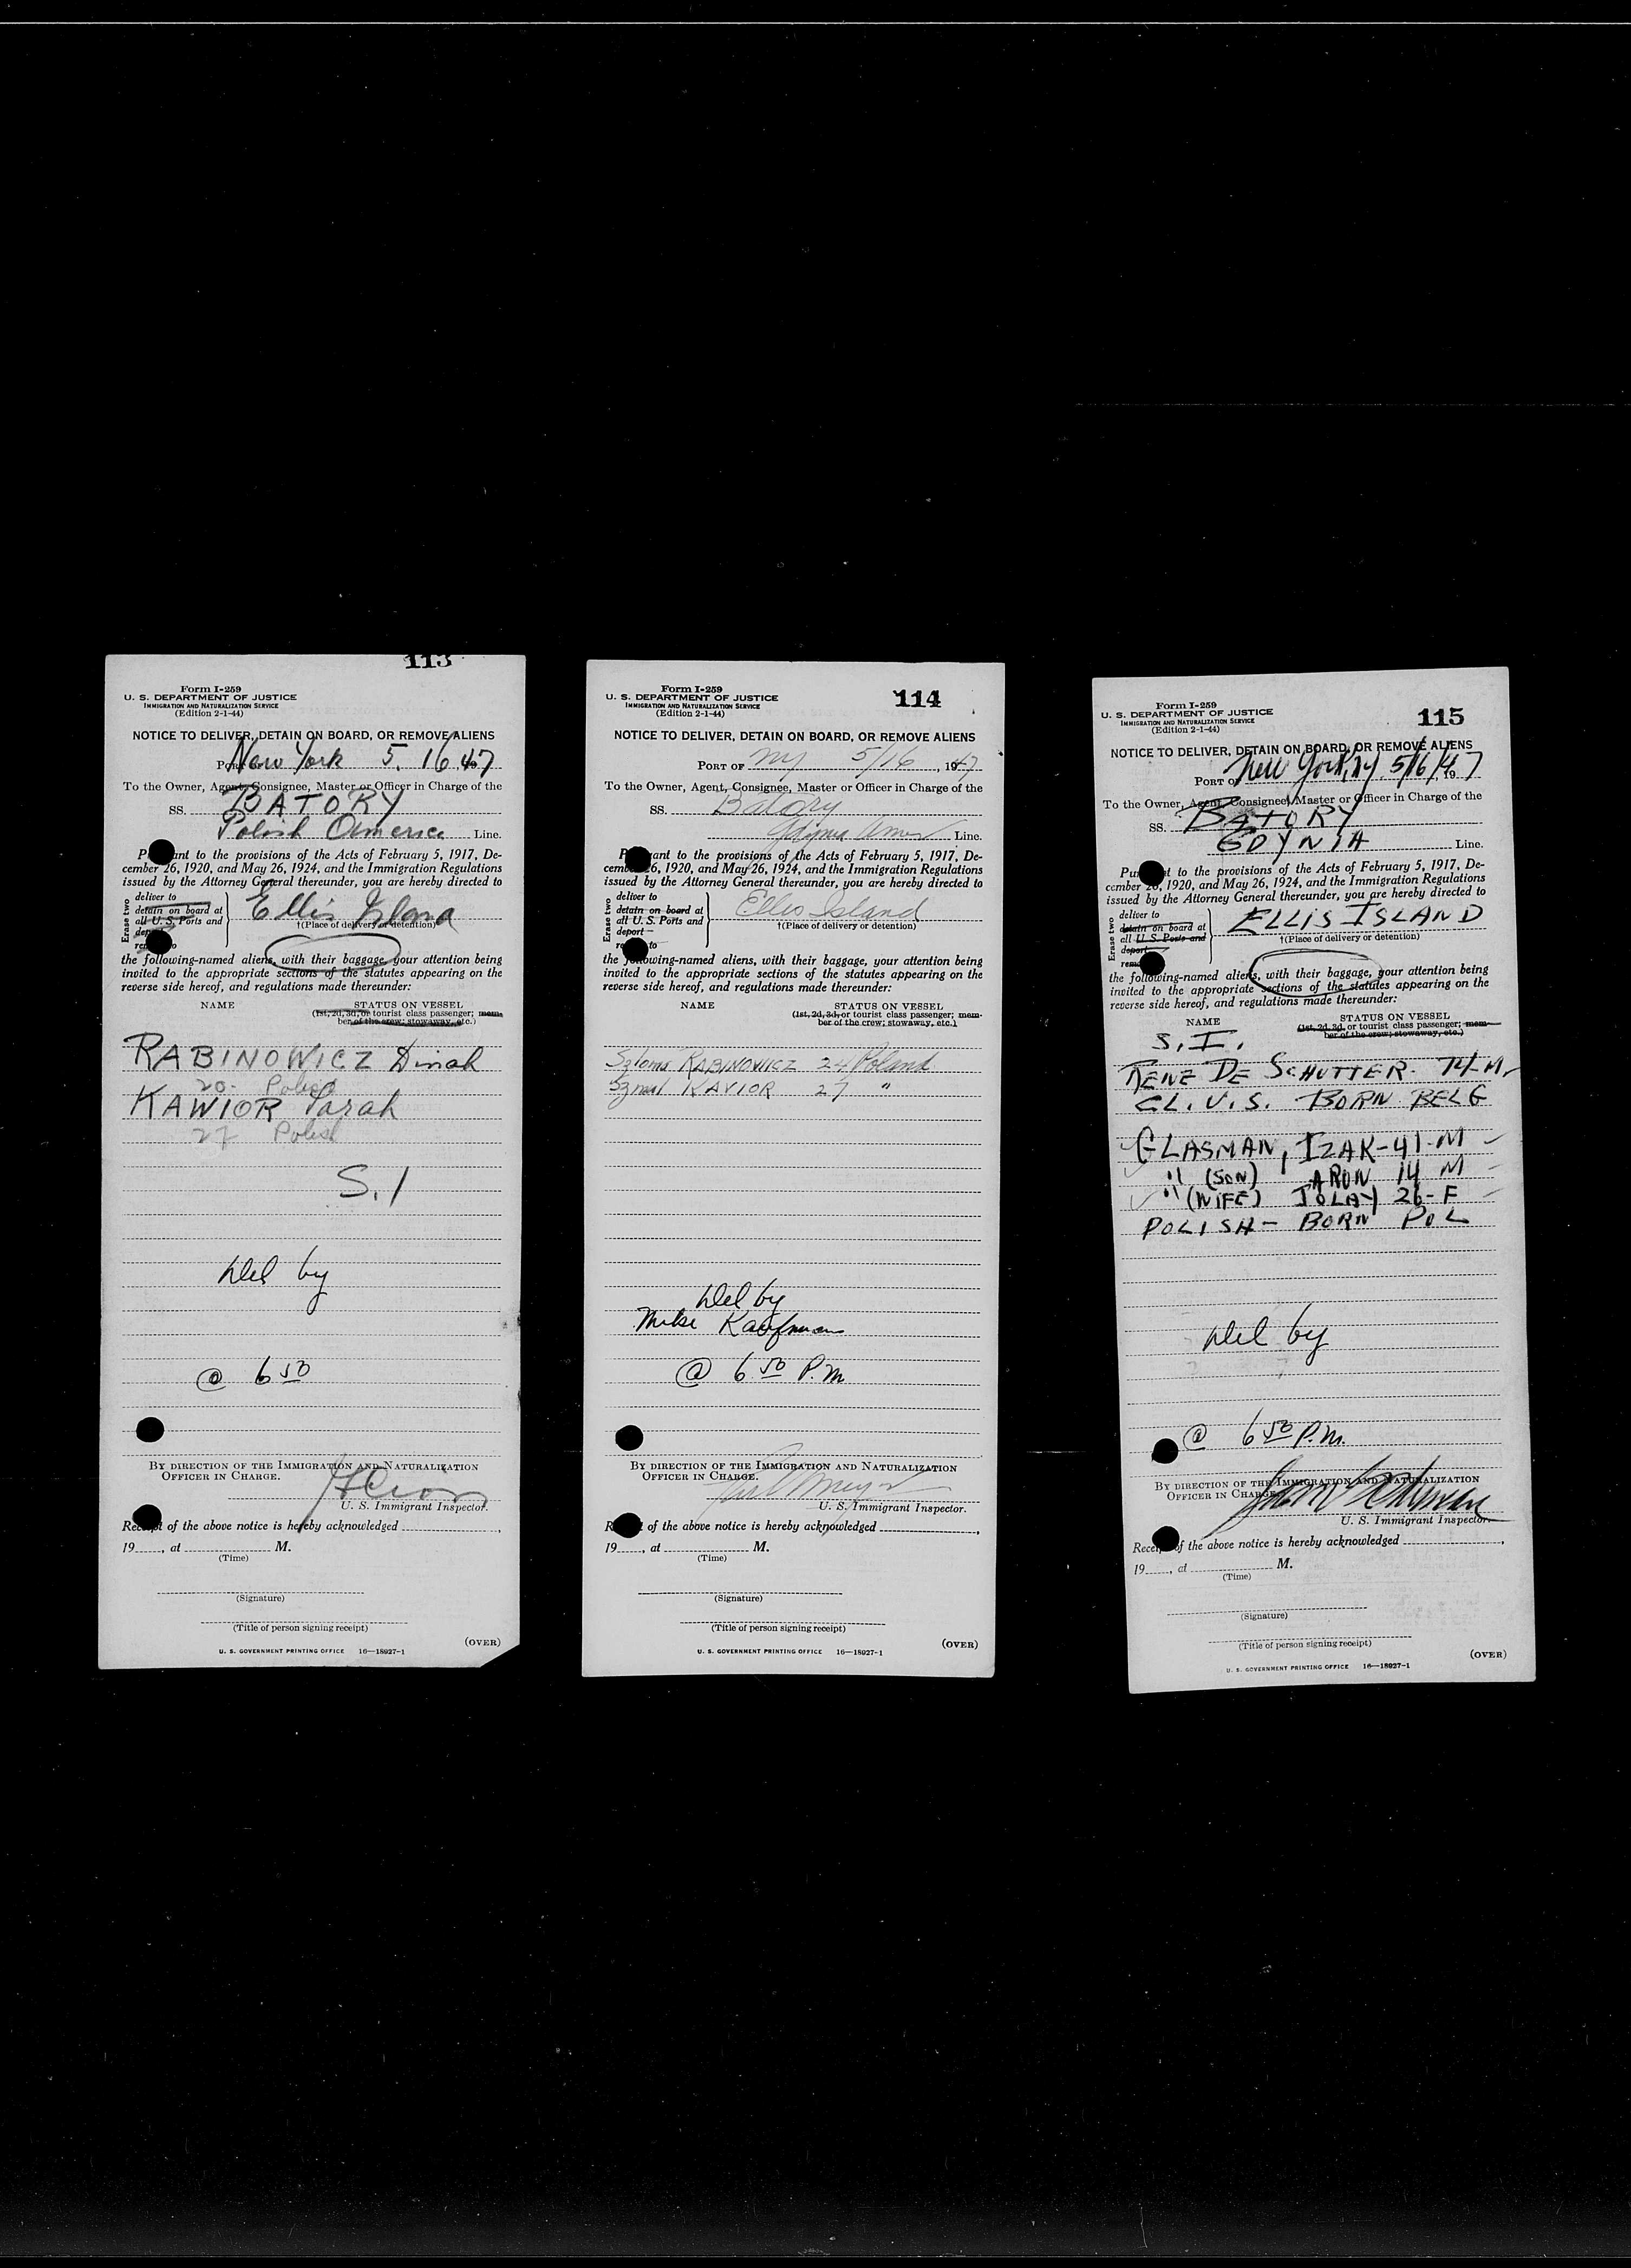 113
Form I-259
U. S. DEPARTMENT OF JUSTICE
IMMIGRATION AND NATURALIZATION SERVICE
(Edition 2-1-44)
NOTICE TO DELIVER, DETAIN ON BOARD, OR REMOVE ALIENS
PORT New York 5. 16. 1947
To the Owner, Agent, Consignee, Master or Officer in Charge of the
SS. BATORY
Polish America Line.
Pursuant to the provisions of the Acts of February 5, 1917, De-
cember 26, 1920, and May 26, 1924, and the Immigration Regulations
issued by the Attorney General thereunder, you are hereby directed to
Erase two
deliver to
detain on board at
all U. S. Ports and
deport
remove to
Ellis Island
†(Place of delivery or detention)
the following-named aliens, with their baggage, your attention being
invited to the appropriate sections of the statutes appearing on the
reverse side hereof, and regulations made thereunder:
NAME STATUS ON VESSEL
(1st, 2d, 3d, or tourist class passenger; mem-
ber of the crew; stowaway, etc.)
RABINOWICZ Dinah
20. Polish
KAWIOR Sarah
27 Polish
S.I
Del by
@ 6 50
BY DIRECTION OF THE IMMIGRATION AND NATURALIZATION
OFFICER IN CHARGE.
U. S. Immigrant Inspector.
Receipt of the above notice is hereby acknowledged
19, at M.
(Time)
(Signature)
(Title of person signing receipt)
(OVER)
U. S. GOVERNMENT PRINTING OFFICE 16—18927-1
114
Form I-259
U. S. DEPARTMENT OF JUSTICE
IMMIGRATION AND NATURALIZATION SERVICE
(Edition 2-1-44)
NOTICE TO DELIVER, DETAIN ON BOARD, OR REMOVE ALIENS
PORT OF NY 5/16, 1947
To the Owner, Agent, Consignee, Master or Officer in Charge of the
SS. Batory
Gdynia Amer Line.
Pursuant to the provisions of the Acts of February 5, 1917, De-
cember 26, 1920, and May 26, 1924, and the Immigration Regulations
issued by the Attorney General thereunder, you are hereby directed to
Erase two
deliver to
detain on board at
all U. S. Ports and
deport
remove to
Ellis Island
†(Place of delivery or detention)
the following-named aliens, with their baggage, your attention being
invited to the appropriate sections of the statutes appearing on the
reverse side hereof, and regulations made thereunder:
NAME STATUS ON VESSEL
(1st, 2d, 3d, or tourist class passenger; mem-
ber of the crew; stowaway, etc.)
RABINOWICZ 24 Poland
KAVIOR 27 "
Del by
Mike Kaufman
@ 6 50 P.M
BY DIRECTION OF THE IMMIGRATION AND NATURALIZATION
OFFICER IN CHARGE.
U. S. Immigrant Inspector.
Receipt of the above notice is hereby acknowledged
19, at M.
(Time)
(Signature)
(Title of person signing receipt)
(OVER)
U. S. GOVERNMENT PRINTING OFFICE 16—18927-1
115
Form I-259
U. S. DEPARTMENT OF JUSTICE
IMMIGRATION AND NATURALIZATION SERVICE
(Edition 2-1-44)
NOTICE TO DELIVER, DETAIN ON BOARD, OR REMOVE ALIENS
PORT OF New York, NY 5/16/1947
To the Owner, Agent, Consignee, Master or Officer in Charge of the
SS. BATORY
GDYNIA Line.
Pursuant to the provisions of the Acts of February 5, 1917, De-
cember 26, 1920, and May 26, 1924, and the Immigration Regulations
issued by the Attorney General thereunder, you are hereby directed to
Erase two
deliver to
detain on board at
all U. S. Ports and
deport
remove
ELLIS ISLAND
†(Place of delivery or detention)
the following-named aliens, with their baggage, your attention being
invited to the appropriate sections of the statutes appearing on the
reverse side hereof, and regulations made thereunder:
NAME STATUS ON VESSEL
(1st, 2d, 3d, or tourist class passenger; mem-
ber of the crew; stowaway, etc.)
S.I.
RENE DE SCHUTTER - 74-M
CL. U.S. BORN BELG
GLASMAN, IZAK-41-M
" (SON) ARON 14 M
" (WIFE) JOLAY 26-F
POLISH - BORN POL
Del by
@ 6 50 P.M.
BY DIRECTION OF THE IMMIGRATION AND NATURALIZATION
OFFICER IN CHARGE.
U. S. Immigrant Inspector.
Receipt of the above notice is hereby acknowledged
19, at M.
(Time)
(Signature)
(Title of person signing receipt)
(OVER)
U. S. GOVERNMENT PRINTING OFFICE 16—18927-1